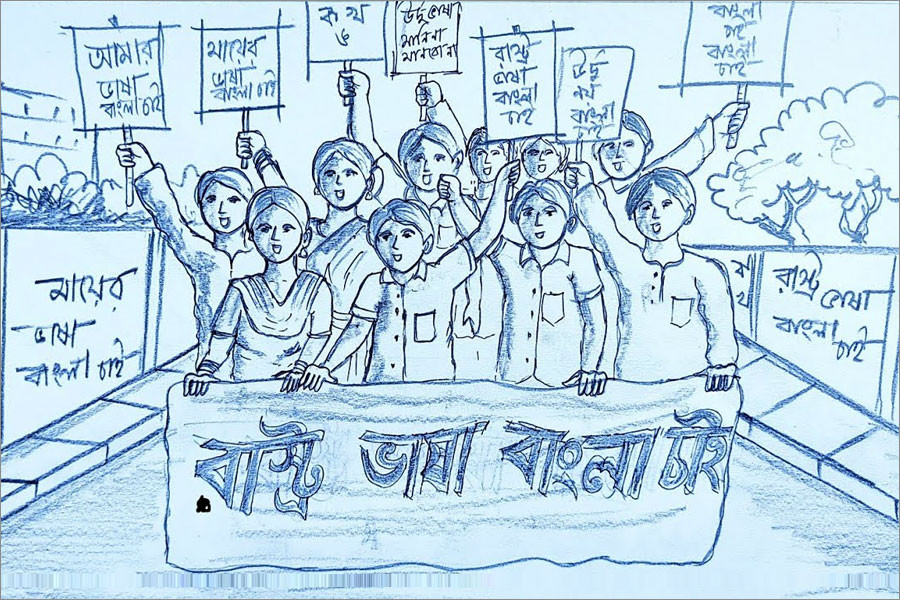 আমার
ভাষা
বাংলা চাই
মায়ের
ভাষা
বাংলা চাই
ক খ
ঙ
উর্দু ভাষা
মানিনা
মানবোনা
রাস্ট্র
ভাষা
বাংলা
চাই
উর্দু
নয়
বাংলা
চাই
বাংলা
চাই
বাংলা
চাই
মায়ের
ভাষা
বাংলা চাই
রাস্ট্র ভাষা
বাংলা
চাই
রাস্ট্র ভাষা বাংলা চাই